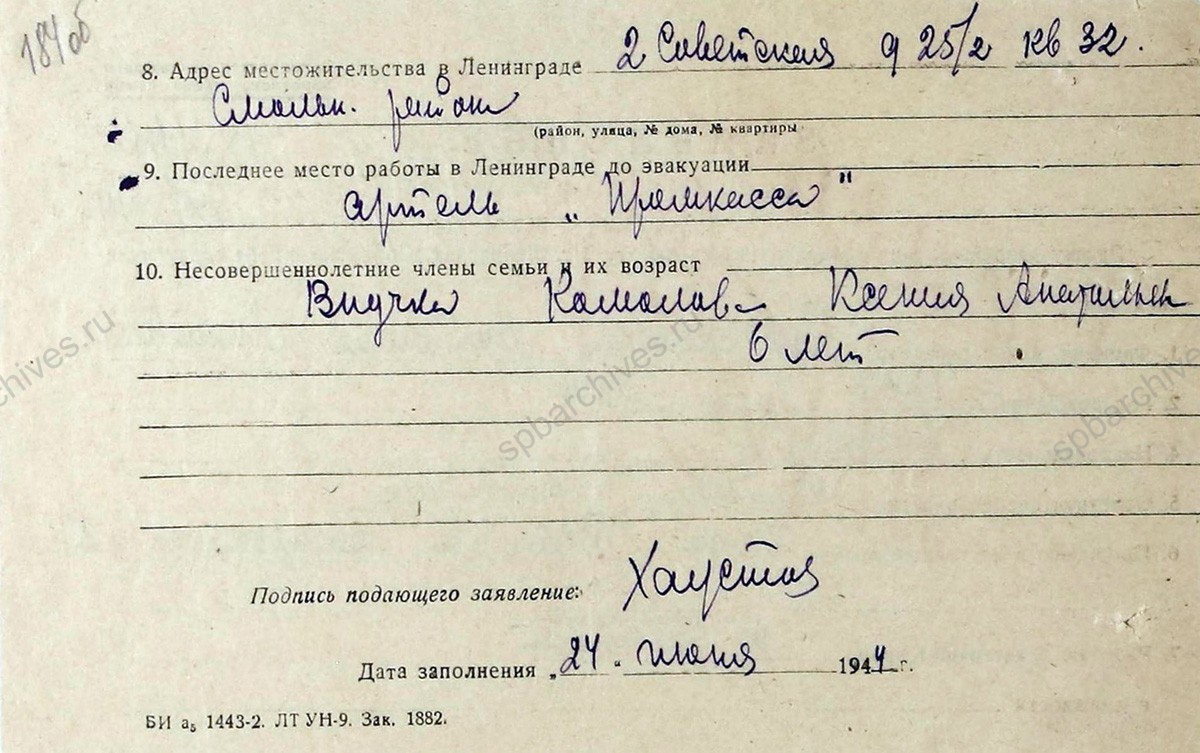 184об
8. Адрес местожительства в Ленинграде 2 Советская д 25/2 кв 32.
Смольн. район
(район, улица, № дома, № квартиры
9. Последнее место работы в Ленинграде до эвакуации
артель „Промкасса"
10. Несовершеннолетние члены семьи и их возраст
Внучка Ксения
6 лет
Подпись подающего заявление:
Дата заполнения „24" июня 1944 г.
БИ а₅ 1443-2. ЛТ УН-9. Зак. 1882.
spbarchives.ru